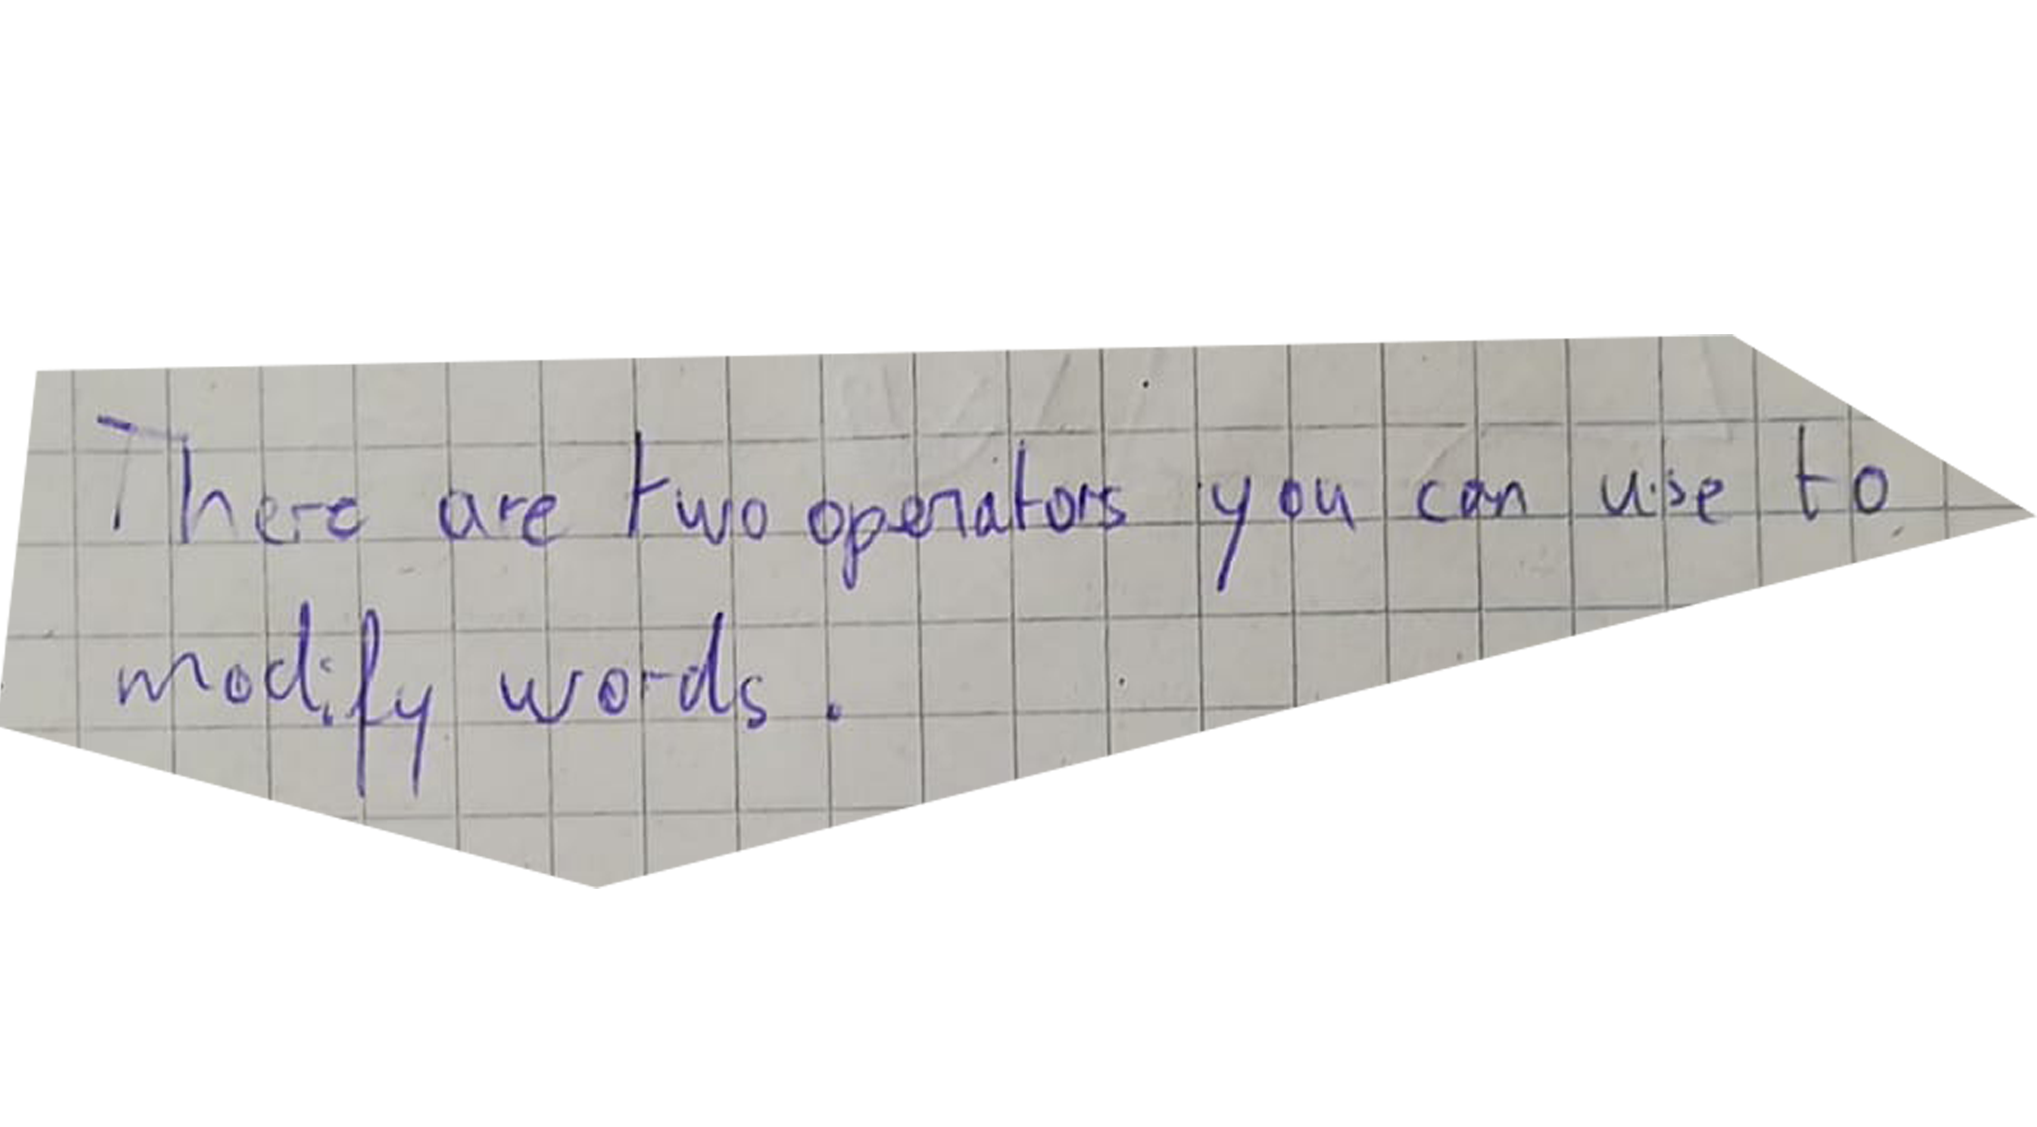 There are two operators you can use to
modify words.